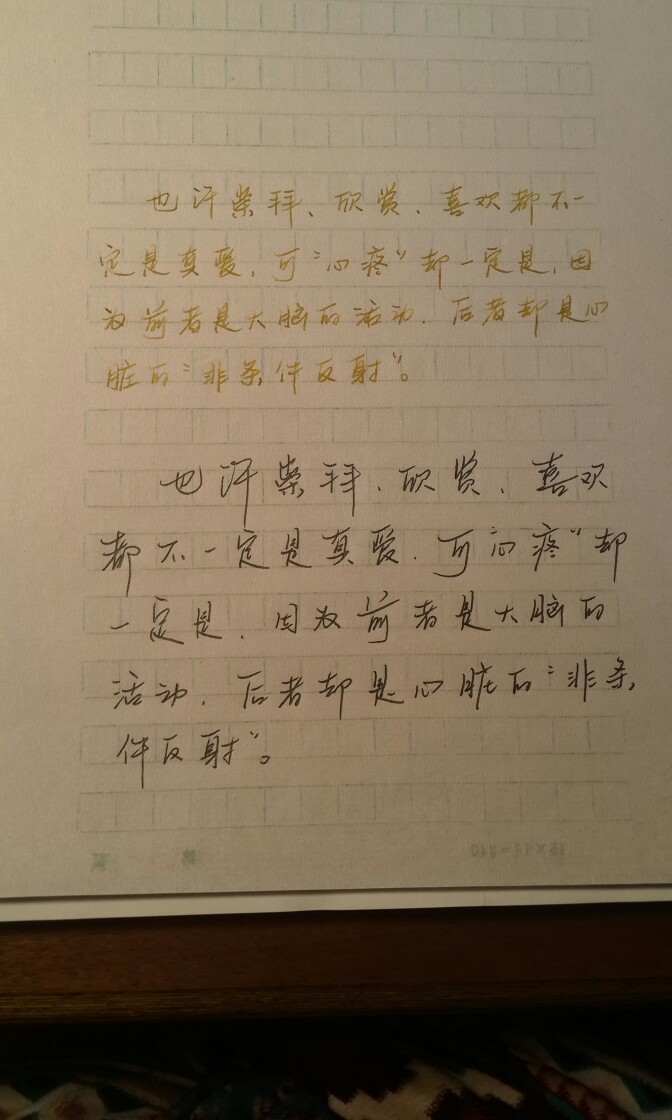 也许崇拜、欣赏、喜欢都不一
定是真爱，可“心疼”却一定是，因
为前者是大脑的活动，后者却是心
脏的“非条件反射”。
也许崇拜、欣赏、喜欢
都不一定是真爱，可“心疼”却
一定是，因为前者是大脑的
活动，后者却是心脏的“非条
件反射”。